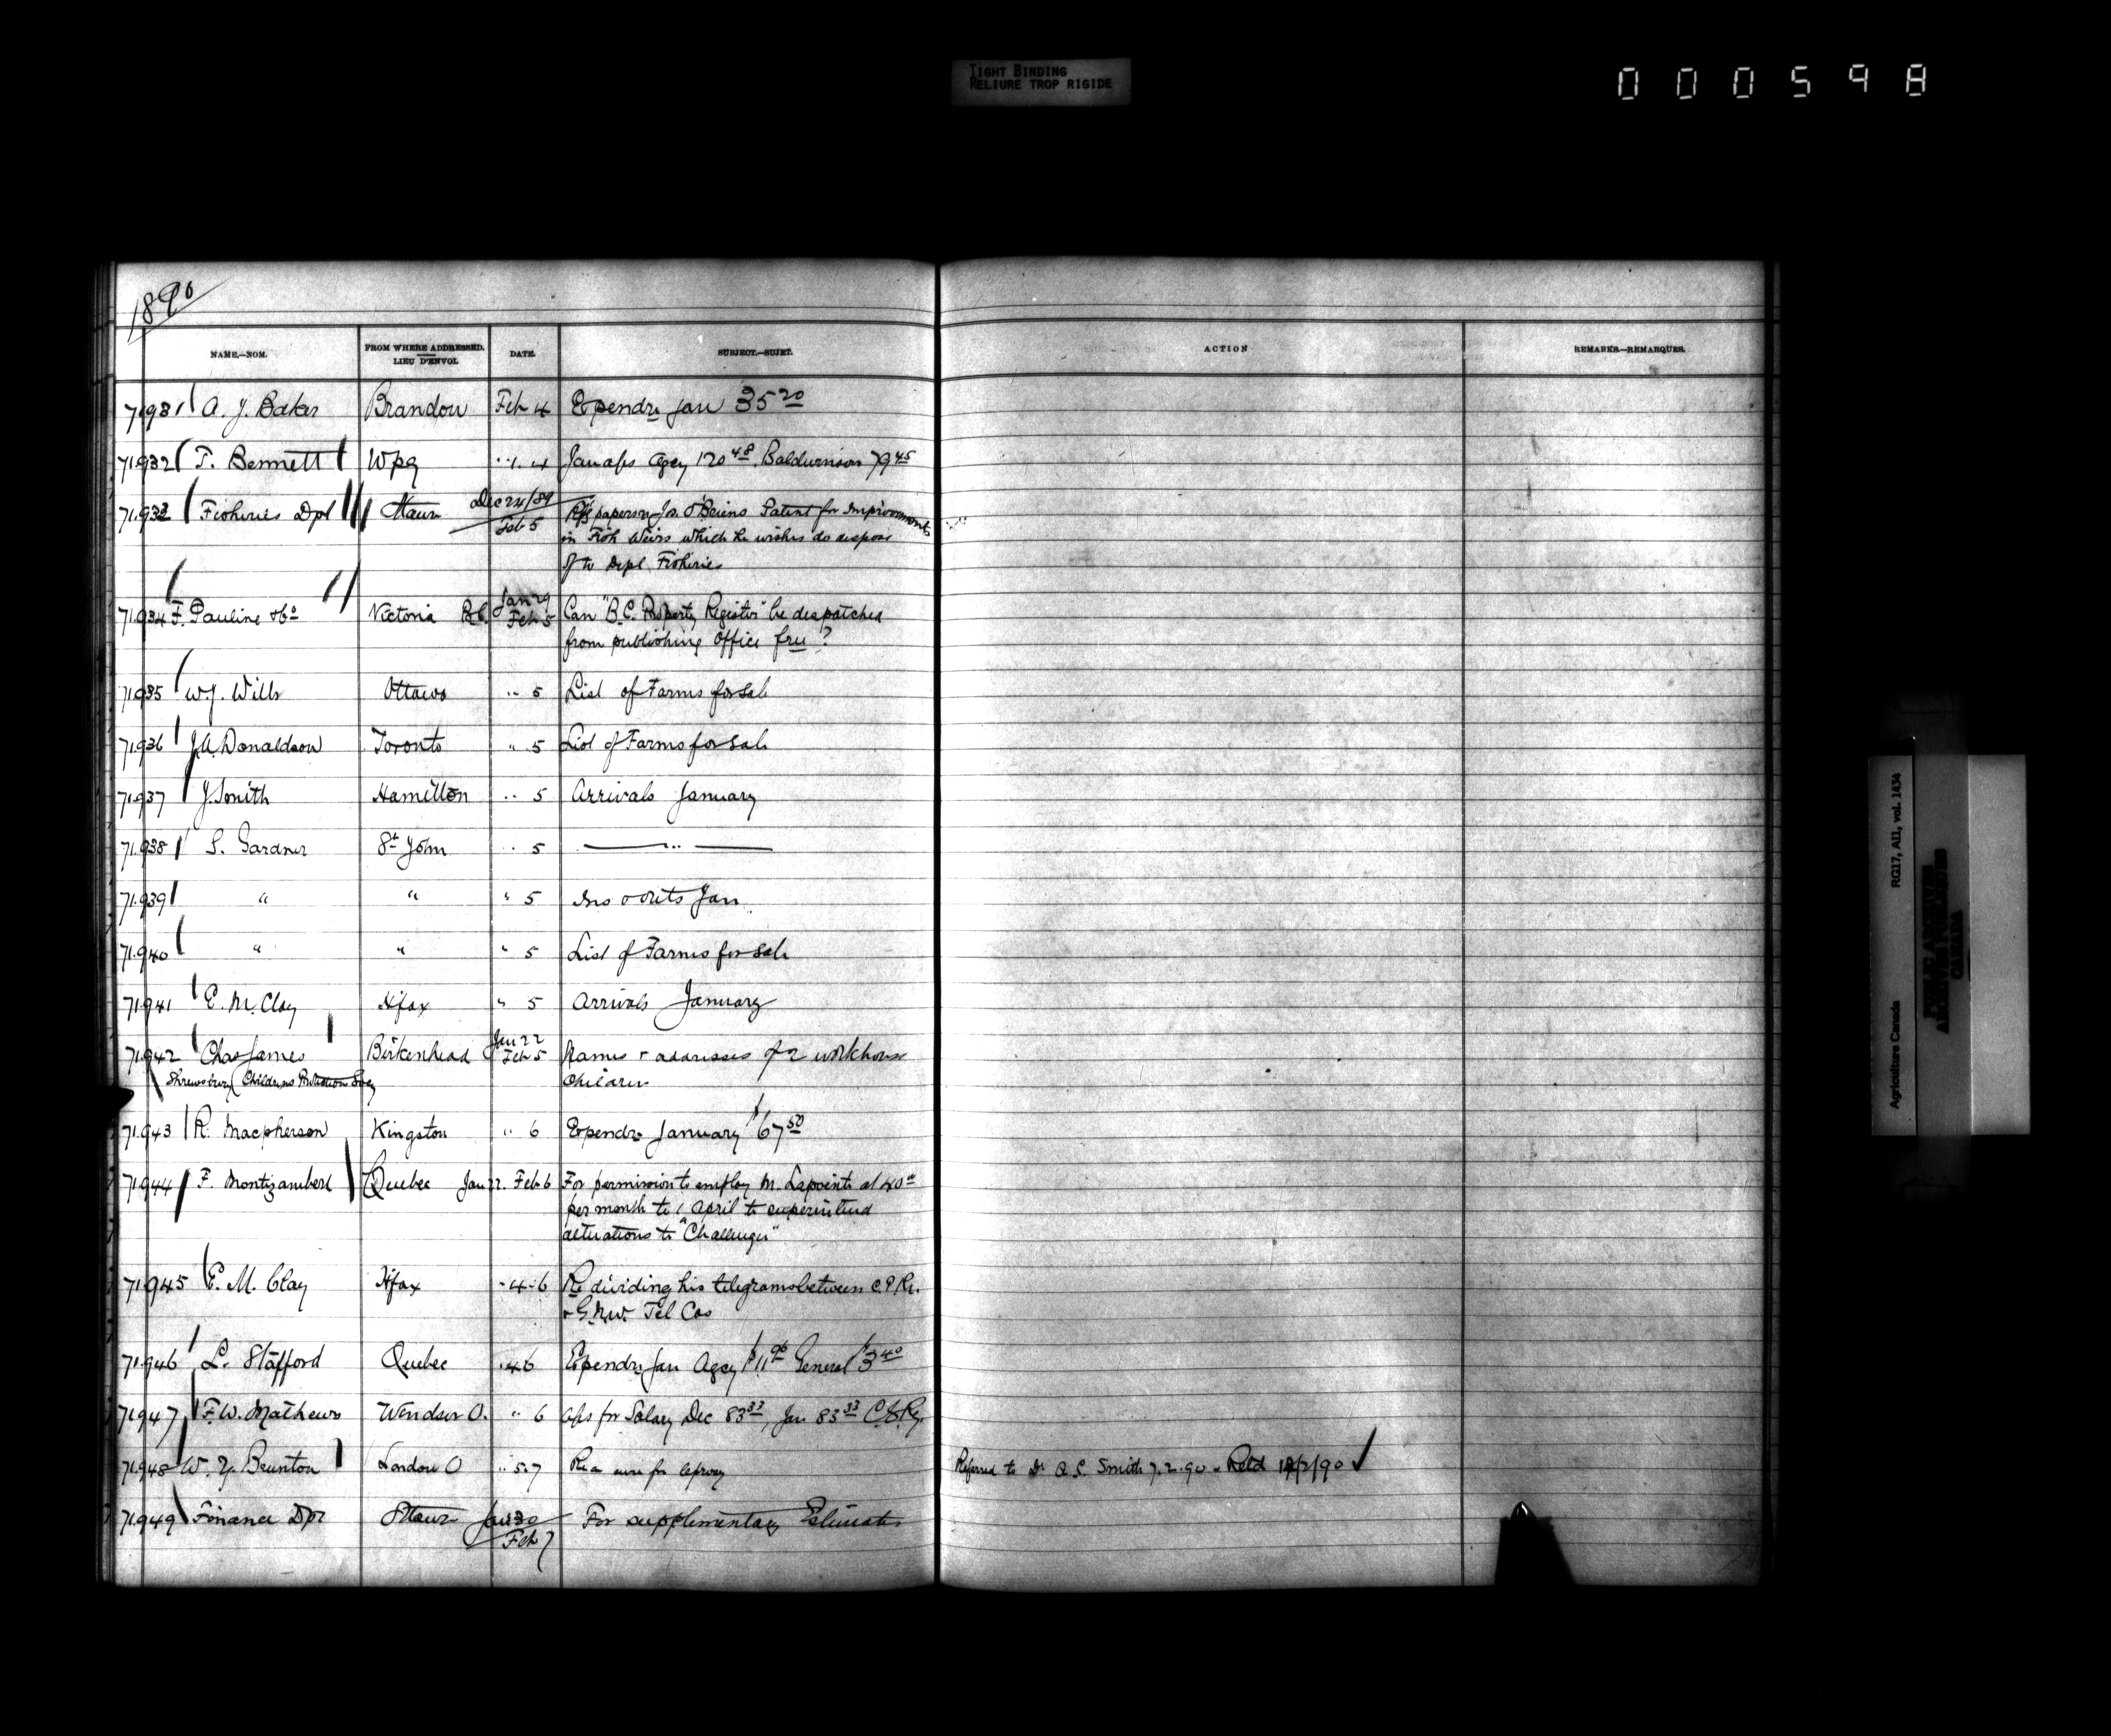 TIGHT BINDING
RELIURE TROP RIGIDE
000598
1890
NAME.—NOM. FROM WHERE ADDRESSED. LIEU D'ENVOI. DATE. SUBJECT.—SUJET. ACTION REMARKS.—REMARQUES.
71931 A. J. Baker Brandon Feb 4 Expendre Jan 35 20
71932 T. Bennett Wpg " 4 Jan a/cs Agcy 120 48 Baldwinson 79 45
71933 Fisheries Dpt Ottawa Dec 24/89
Feb 5 papers Jos. O'Briens Patent for Improvements
in Fish Weirs which he wishes to dispose
of to Dept Fisheries
71934 F. Pauline & Co Victoria B.C. Jan 29
Feb 5 Can "B.C. Property Register" be despatched
from publishing Office free?
71935 W.J. Wills Ottawa " 5 List of Farms for Sale
71936 J.A. Donaldson Toronto " 5 List of Farms for Sale
71937 J. Smith Hamilton " 5 Arrivals January
71938 S. Gardner St John " 5 — " —
71939 " " " 5 Ins & outs Jan
71940 " " " 5 List of Farms for Sale
71941 E. M. Clay Hfax " 5 Arrivals January
71942 Chas James Birkenhead Jan 22
Feb 5 Names & addresses of 2 workhouse
Shrewsbury Childrens Protection Socy children
71943 R. Macpherson Kingston " 6 Expendre January $67 50
71944 F. Montizambert Quebec Jan 22. Feb 6 For permission to employ M. Lapointe at 40 00
per month to 1 April to superintend
alterations to "Challenger"
71945 E. M. Clay Hfax " 4 - 6 Re dividing his telegrams between C.P.R.
& G.N.W. Tel Cos
71946 L. Stafford Quebec " 4 6 Expendre Jan Agcy General $3 40
71947 F. W. Mathews Windsor O. " 6 a/cs for Salary Dec 83 33, Jan 83 33
71948 W. Y. Brunton London O " 5. 7 Re a cure for leprosy Referred to Dr A. C. Smith 7.2.90 - Retd 12/2/90 ✓
71949 Finance Dpt Ottawa Jan 30
Feb 7 For supplementary Estimates
Agriculture Canada RG17, AI1, vol. 1434
PUBLIC ARCHIVES
ARCHIVES PUBLIQUES
CANADA